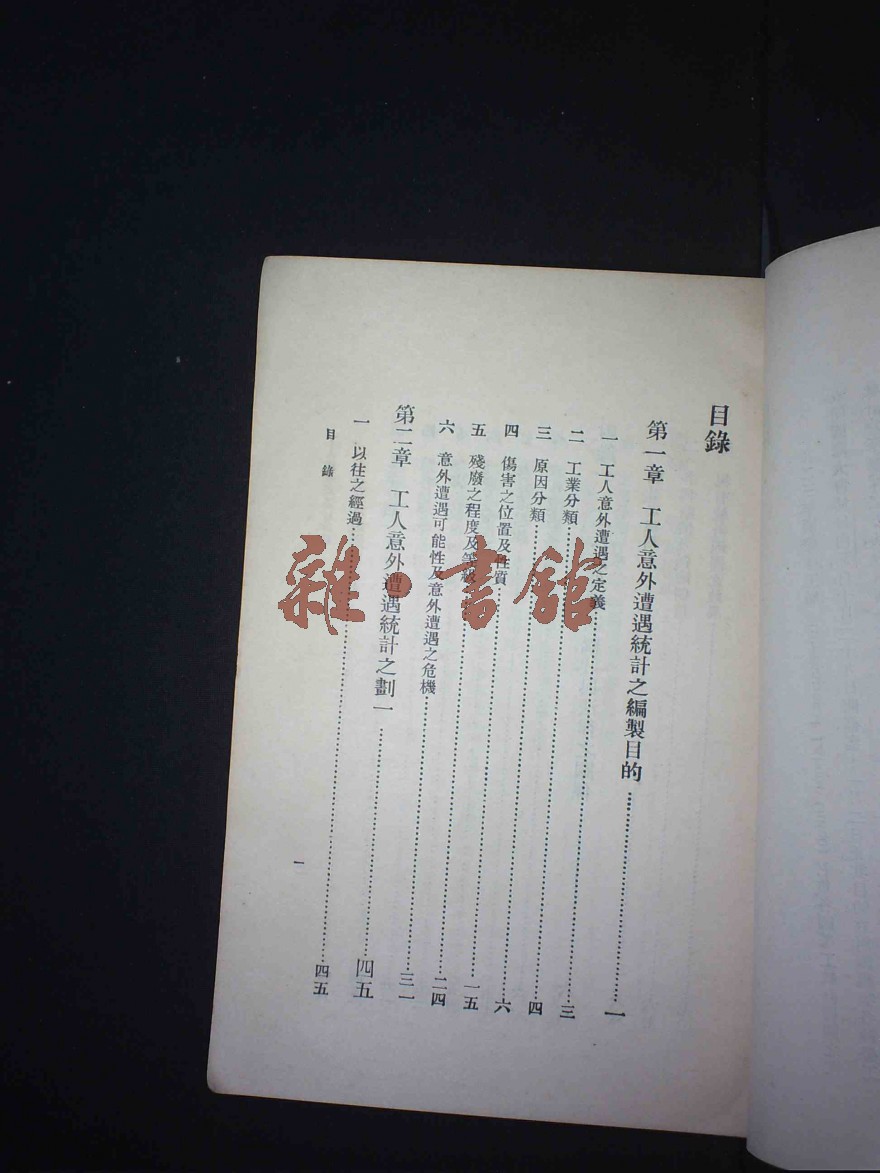 目錄
第一章 工人意外遭遇統計之編製目的……一
一 工人意外遭遇之定義……三
二 工業分類……四
三 原因分類……六
四 傷害之位置及性質……一五
五 殘廢之程度及等級……二四
六 意外遭遇可能性及意外遭遇之危機……三一
第二章 工人意外遭遇統計之劃一……四五
一 以往之經過……四五
目錄
一
雜·書館